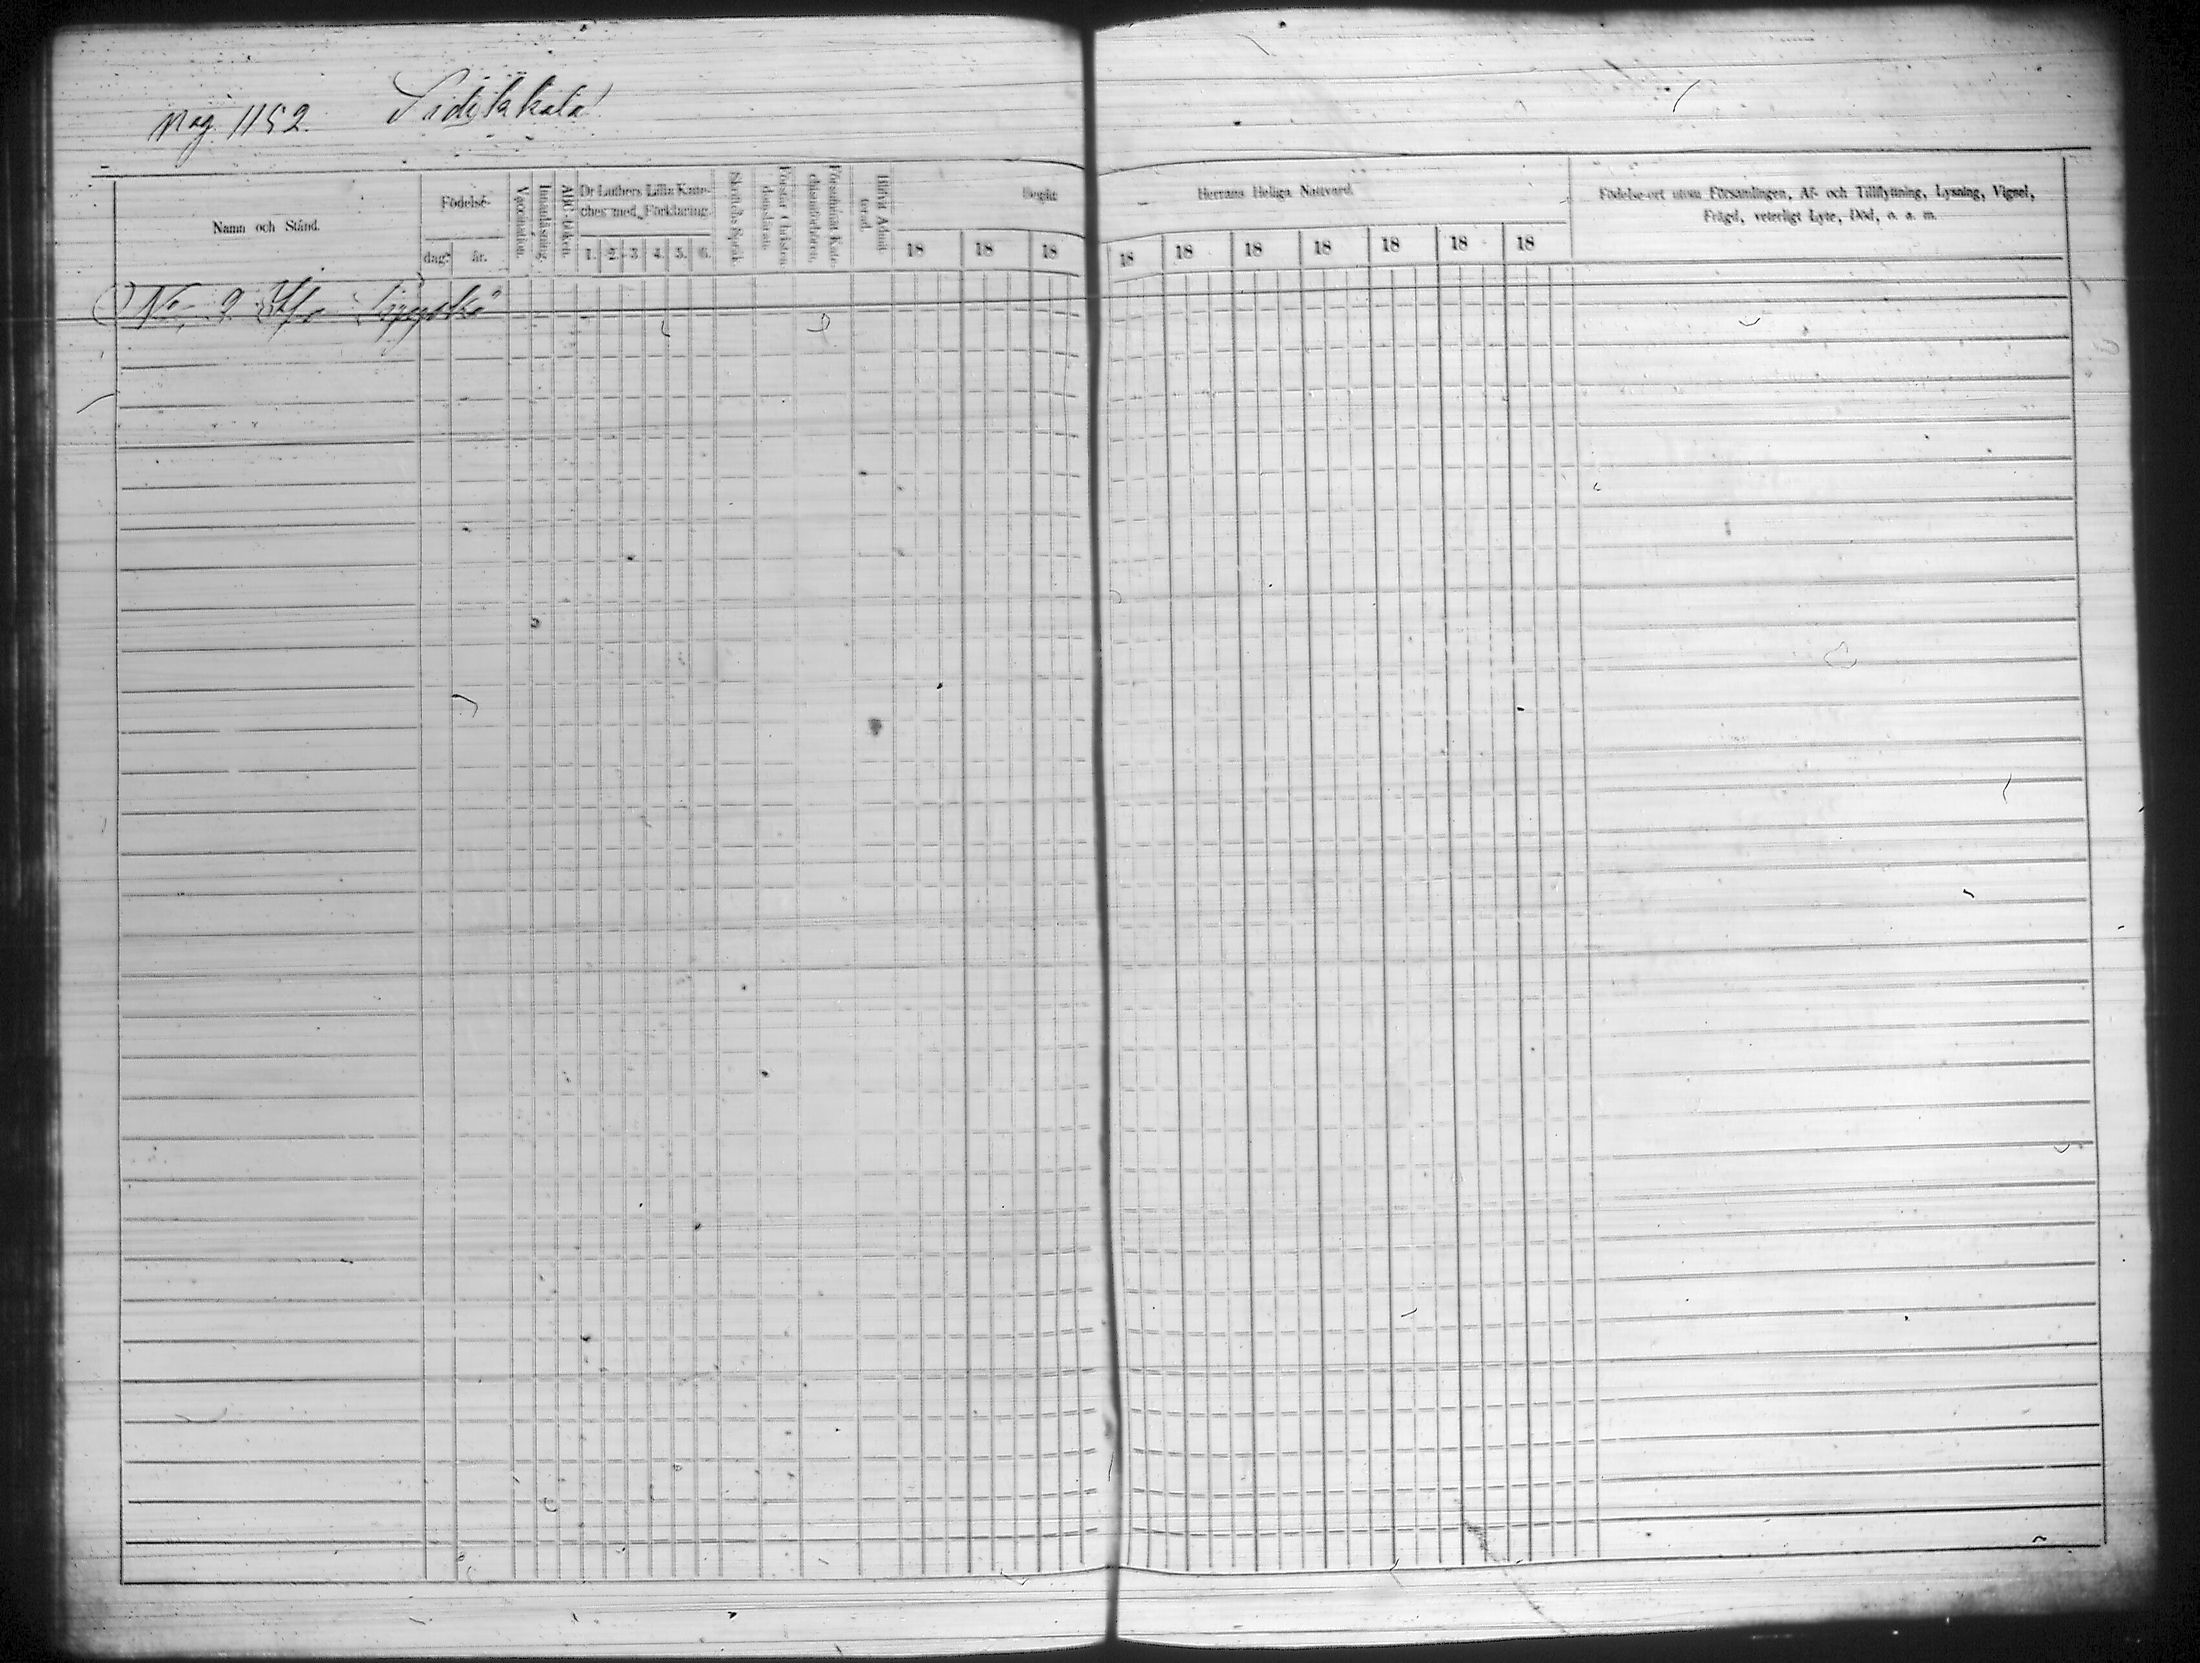 pag. 1152. Sidikkala
Namn och Stånd.
Födelse-
dag.
år.
Vaccination.
Innanläsning.
ABC-boken.
Dr Luthers Lilla Kate-
ches med Förklaring.
1. 2. 3. 4. 5. 6.
Skriftens Språk.
Förstår Christen-
domslären.
Försummat Kate-
chismiförhören.
Blifvit Admit-
terad.
Begått Herrans Heliga Nattvard.
18 18 18 18 18 18 18 18 18 18
Födelse-ort utom Församlingen, Af- och Tillflyttning, Lysning, Vigsel,
Frägd, veterligt Lyte, Död, o. s. m.
No 9